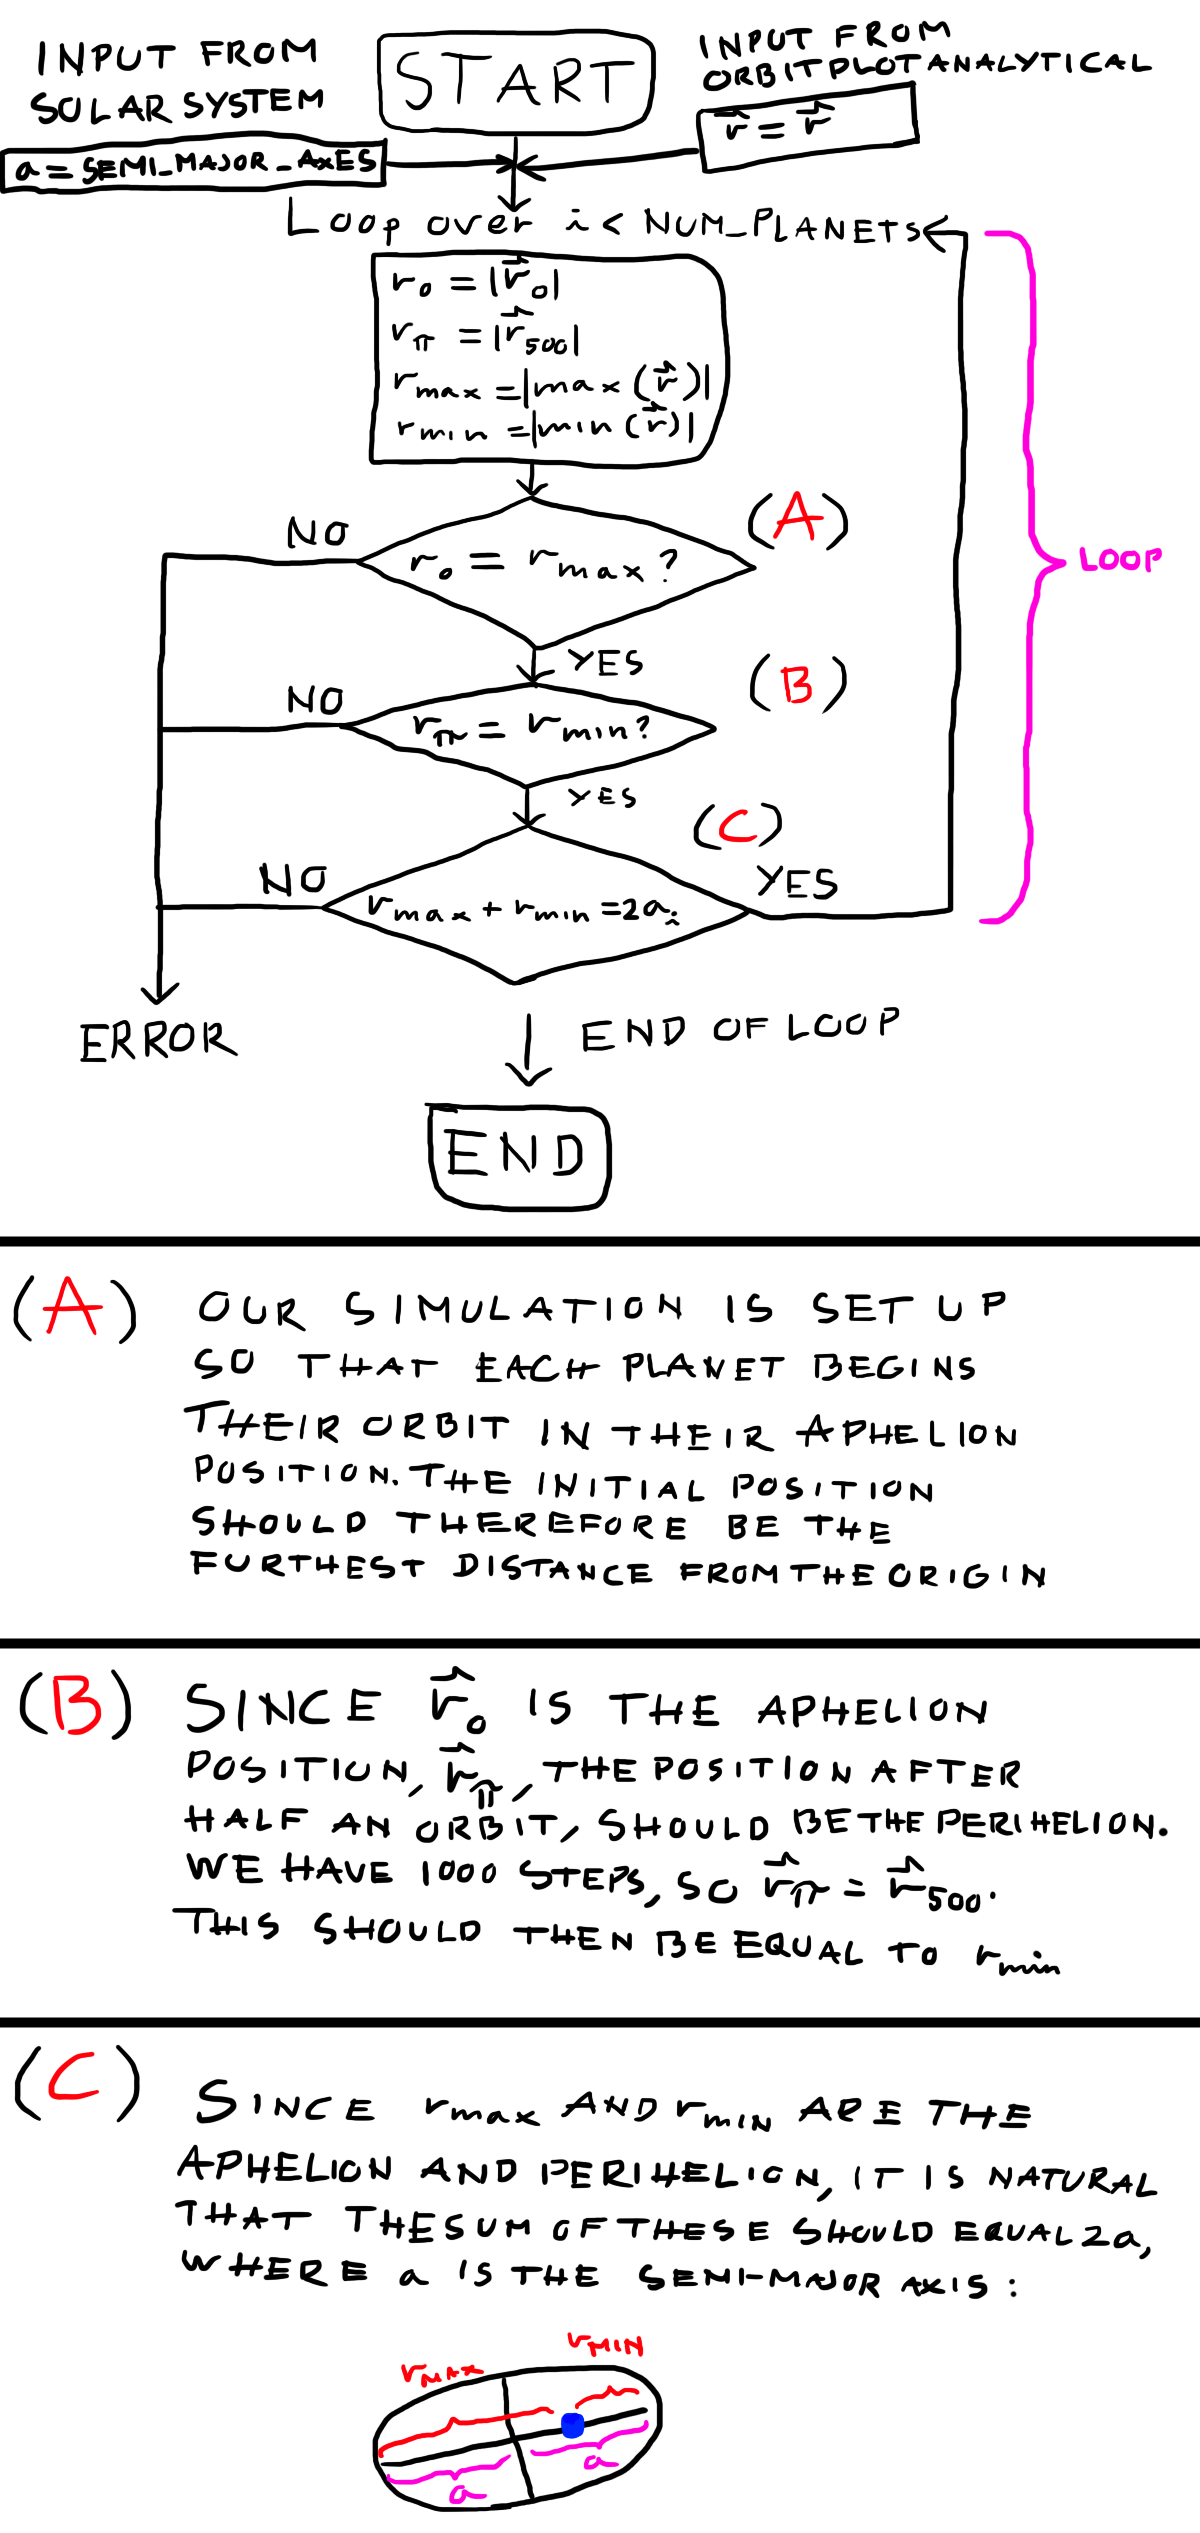 INPUT FROM
SOLAR SYSTEM
a = SEMI_MAJOR_AXES
START
INPUT FROM
ORBITPLOTANALYTICAL
r⃗ = r⃗
Loop over i < NUM_PLANETS
r₀ = |r⃗₀|
r_π = |r⃗₅₀₀|
r_max = |max(r⃗)|
r_min = |min(r⃗)|
LOOP
(A)
NO
r₀ = r_max?
YES
(B)
NO
r_π = r_min?
YES
(C)
NO
r_max + r_min = 2a_i
YES
ERROR
END OF LOOP
END
(A) OUR SIMULATION IS SET UP
SO THAT EACH PLANET BEGINS
THEIR ORBIT IN THEIR APHELION
POSITION. THE INITIAL POSITION
SHOULD THEREFORE BE THE
FURTHEST DISTANCE FROM THE ORIGIN
(B) SINCE r⃗₀ IS THE APHELION
POSITION, r⃗_π, THE POSITION AFTER
HALF AN ORBIT, SHOULD BE THE PERIHELION.
WE HAVE 1000 STEPS, SO r⃗_π = r⃗₅₀₀.
THIS SHOULD THEN BE EQUAL TO r_min
(C) SINCE r_max AND r_MIN ARE THE
APHELION AND PERIHELION, IT IS NATURAL
THAT THE SUM OF THESE SHOULD EQUAL 2a,
WHERE a IS THE SEMI-MAJOR AXIS:
r_MIN
r_MAX
a
a